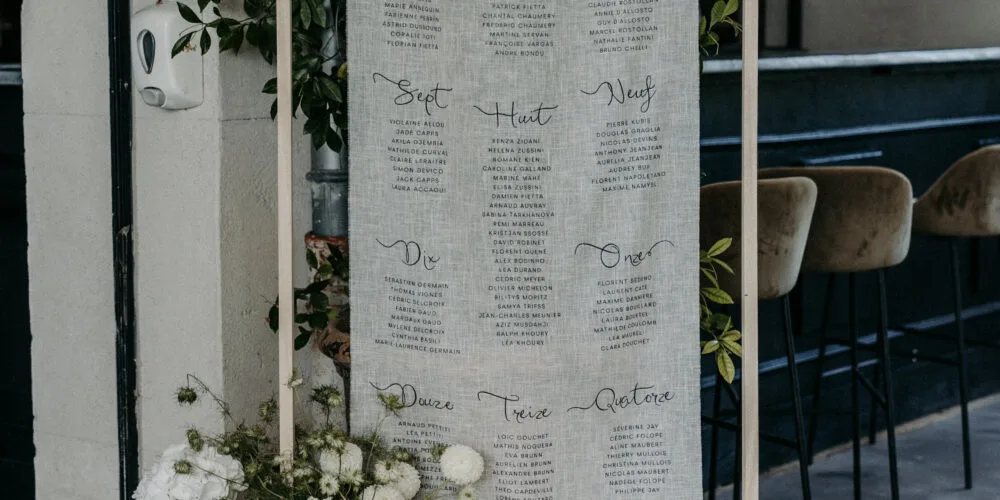 MARIE ANSEGUIN
FABIENNE PERRIN
ASTRID DUSSOURD
CORALIE JOTI
FLORIAN FIETTA
PATRICK FIETTA
CHANTAL CHAUMERY
FREDERIC CHAUMERY
MARTINE SERVAN
FRANÇOISE VARGAS
ANDRE BONDU
CLAUDIE ROSTOLLAN
ANNIE D'ALLOSTO
GUY D'ALLOSTO
MARCEL ROSTOLLAN
NATHALIE FANTINI
BRUNO CHELLI
Sept
VIOLAINE ALLOU
JADE CAPPS
AKILA DJEMBIA
MATHILDE CURVAL
CLAIRE LERAITRE
SIMON DEVICO
JACK CAPPS
LAURA ACCAOUI
Huit
KENZA ZIDANI
HELENA ZUSSINI
ROMANE KIEN
CAROLINE GALLAND
MARINE MAHÉ
ELISA ZUSSINI
DAMIEN FIETTA
ARNAUD AUVRAY
SABINA TARKHANOVA
RÉMI MARREAU
KRISTJAN SSOSSÉ
DAVID ROBINET
FLORENT GUENÉ
ALEX BODINHO
LÉA DURAND
CEDRIC MEYER
OLIVIER MICHELON
BILITYS MORITZ
SAMYA TRIFSS
JEAN-CHARLES MEUNIER
AZIZ MUSDAHJI
RALPH KHOURY
LÉA KHOURY
Neuf
PIERRE KUBIS
DOUGLAS GRAGLIA
NICOLAS DEVINS
ANTHONY JEANJEAN
AURELIA JEANJEAN
AUDREY BUI
FLORENT NAPOLETANO
MAXIME NAMYSL
Dix
SEBASTIEN GERMAIN
THOMAS VIGNES
CÉDRIC DELCROIX
FABIEN GAUD
MARGAUX GAUD
MYLENE DELCROIX
CYNTHIA BASILI
MARIE-LAURENCE GERMAIN
Onze
FLORENT
LAURENT
MAXIME DANNIÈRE
NICOLAS BOUILLARD
LAURA
MATHILDE COULOMB
LÉA MAUREL
CLARA DOUCHET
Douze
ARNAUD PETTITI
LÉA PETTI
ANTOINE
Treize
LOIC GOUCHET
MATHIS NOGUERA
EVA BRUNN
AURELIEN BRUNN
ALEXANDRE BRUNN
ELIOT LAMBERT
THEO CAPDEVILLE
Quatorze
SÉVERINE JAY
CEDRIC FOLOPE
ALINE MAUBERT
THIERRY MULLOIS
CHRISTINA MULLOIS
NICOLAS MAUBERT
NADEGE FOLOPE
PHILIPPE JAY